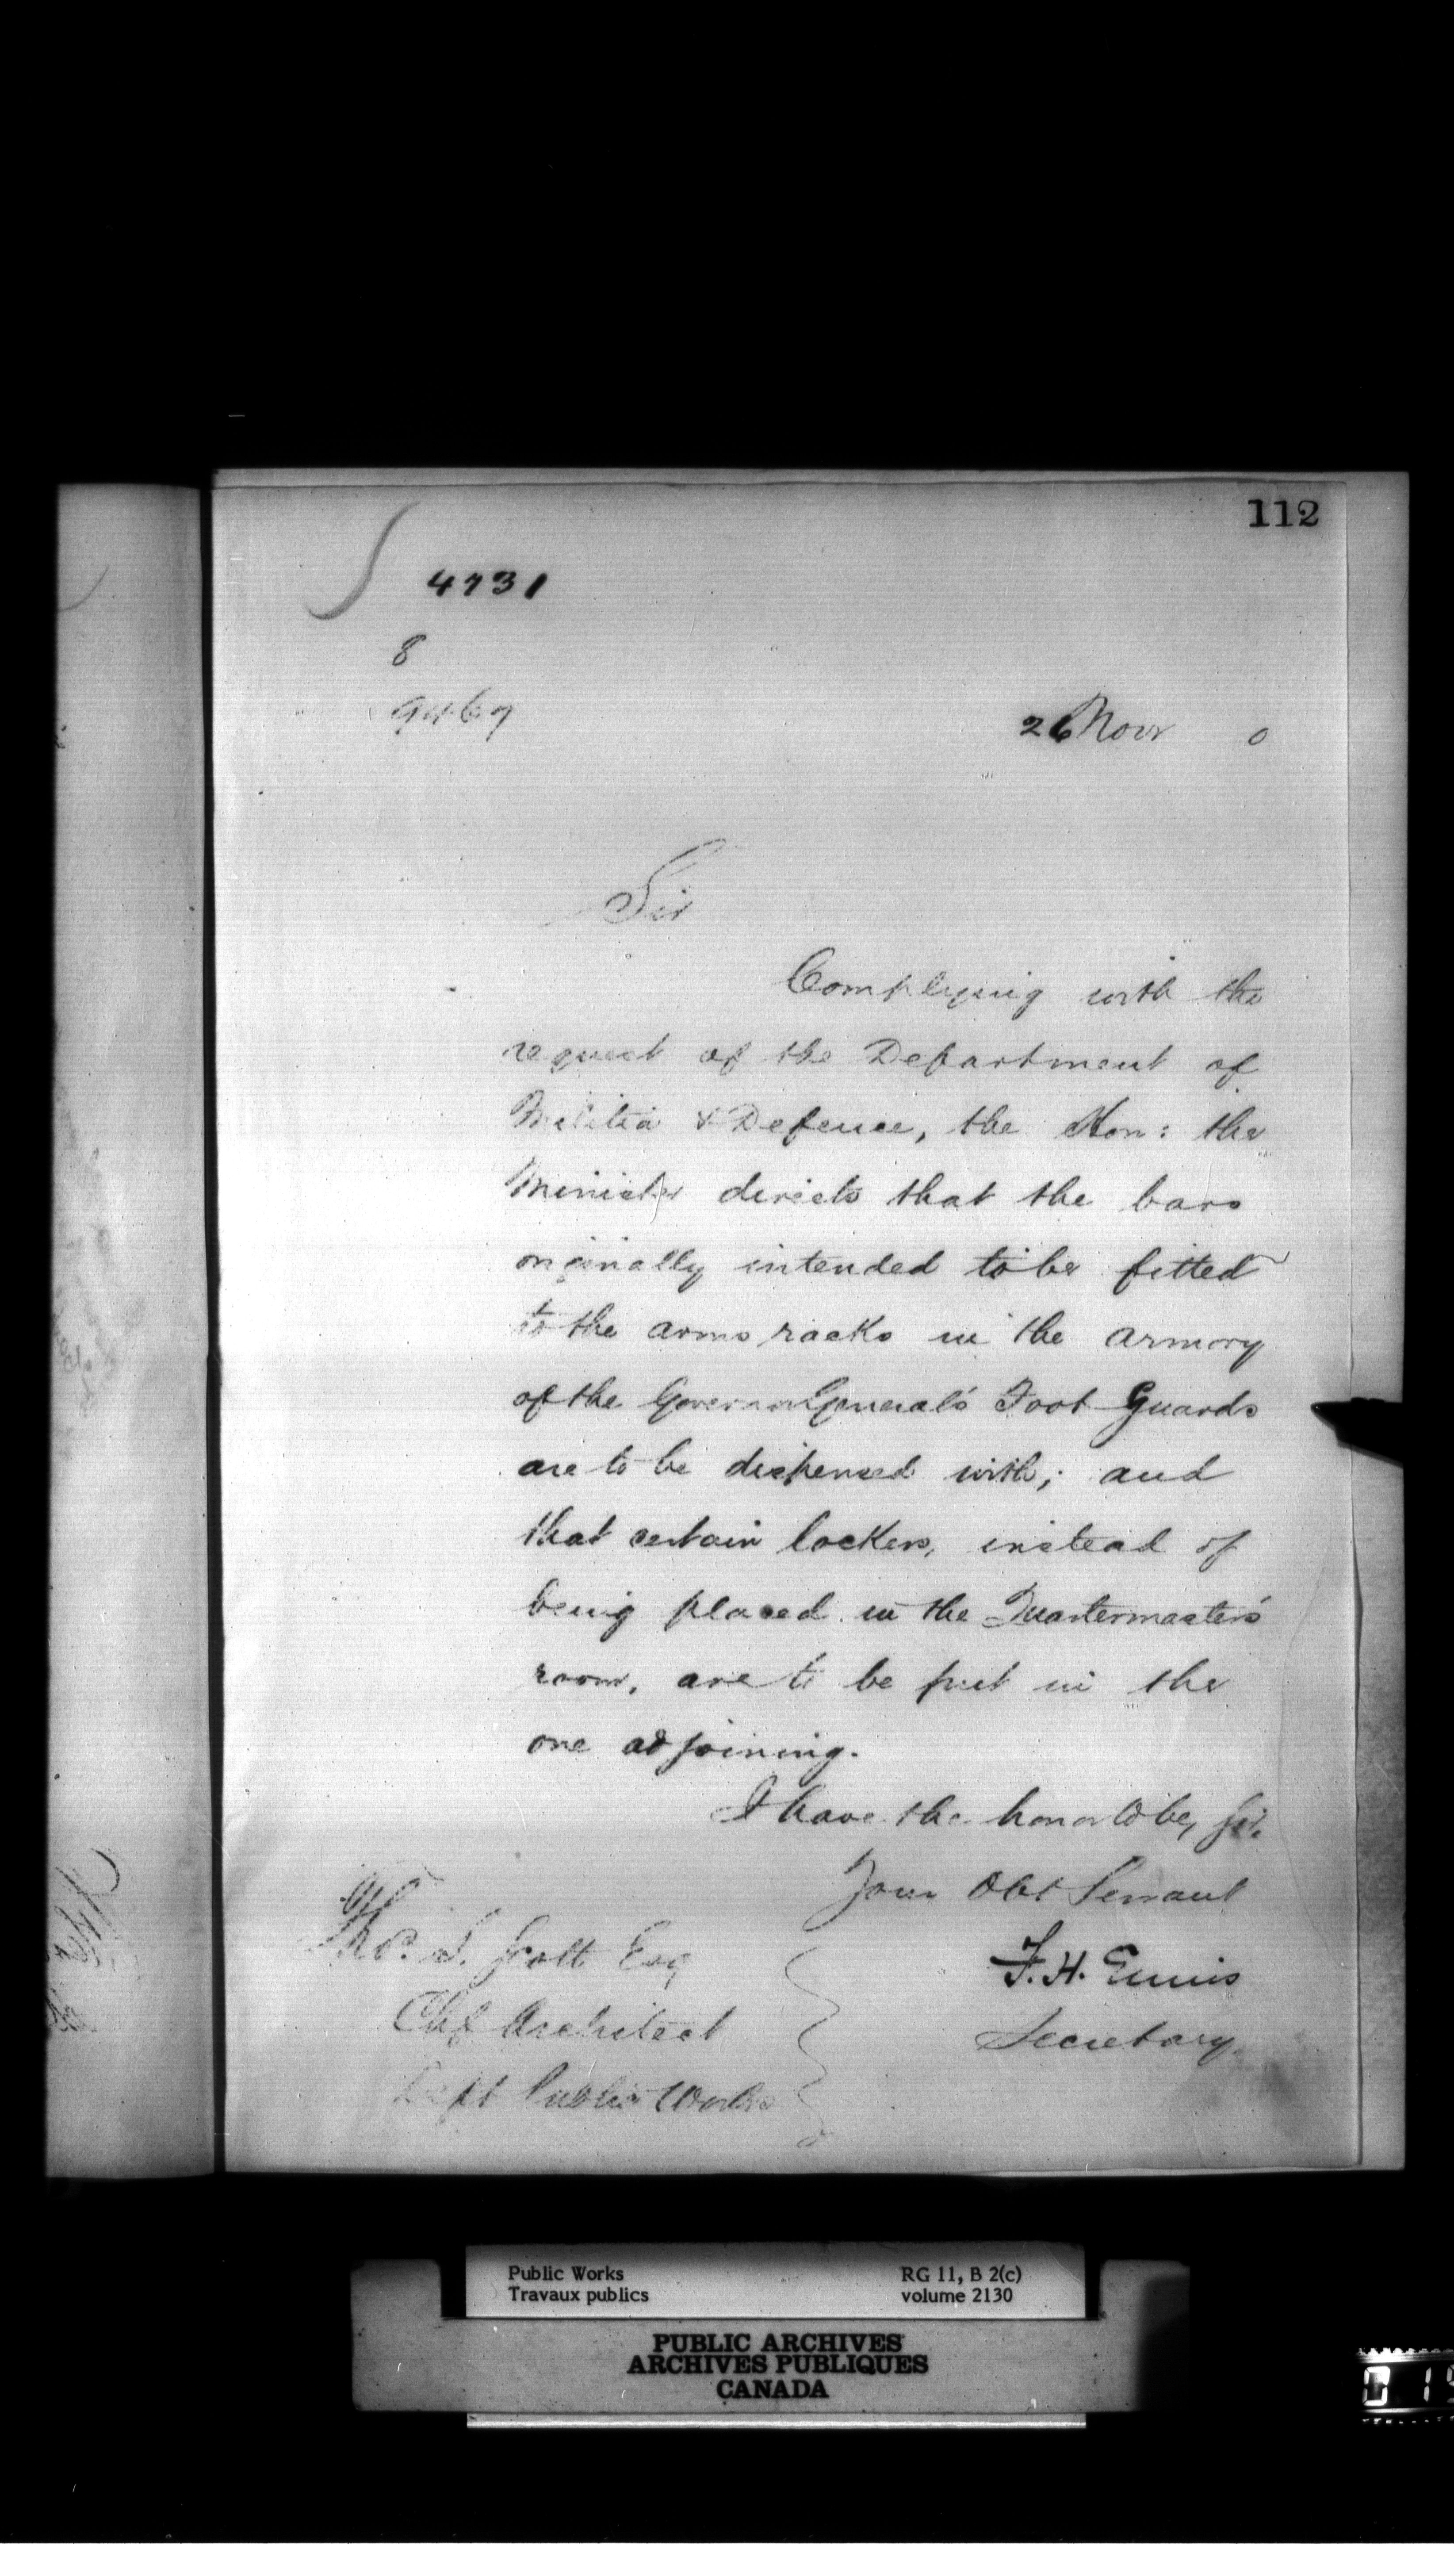 112
4731
8
9467
26 Novr 0
Sir
Complying with the
request of the Department of
Militia & Defence, the Hon: the
Minister directs that the bars
originally intended to be fitted
to the arms racks in the armory
of the Governor General's Foot Guards
are to be dispensed with; and
that certain lockers, instead of
being placed in the Quartermaster's
room, are to be put in the
one adjoining.
I have the honor to be, Sir,
Your Obt Servant
F. H. Ennis
Secretary
Thos. S. Scott Esq
Chf Architect
Dept Public Works
Public Works
Travaux publics
RG 11, B 2(c)
volume 2130
PUBLIC ARCHIVES
ARCHIVES PUBLIQUES
CANADA